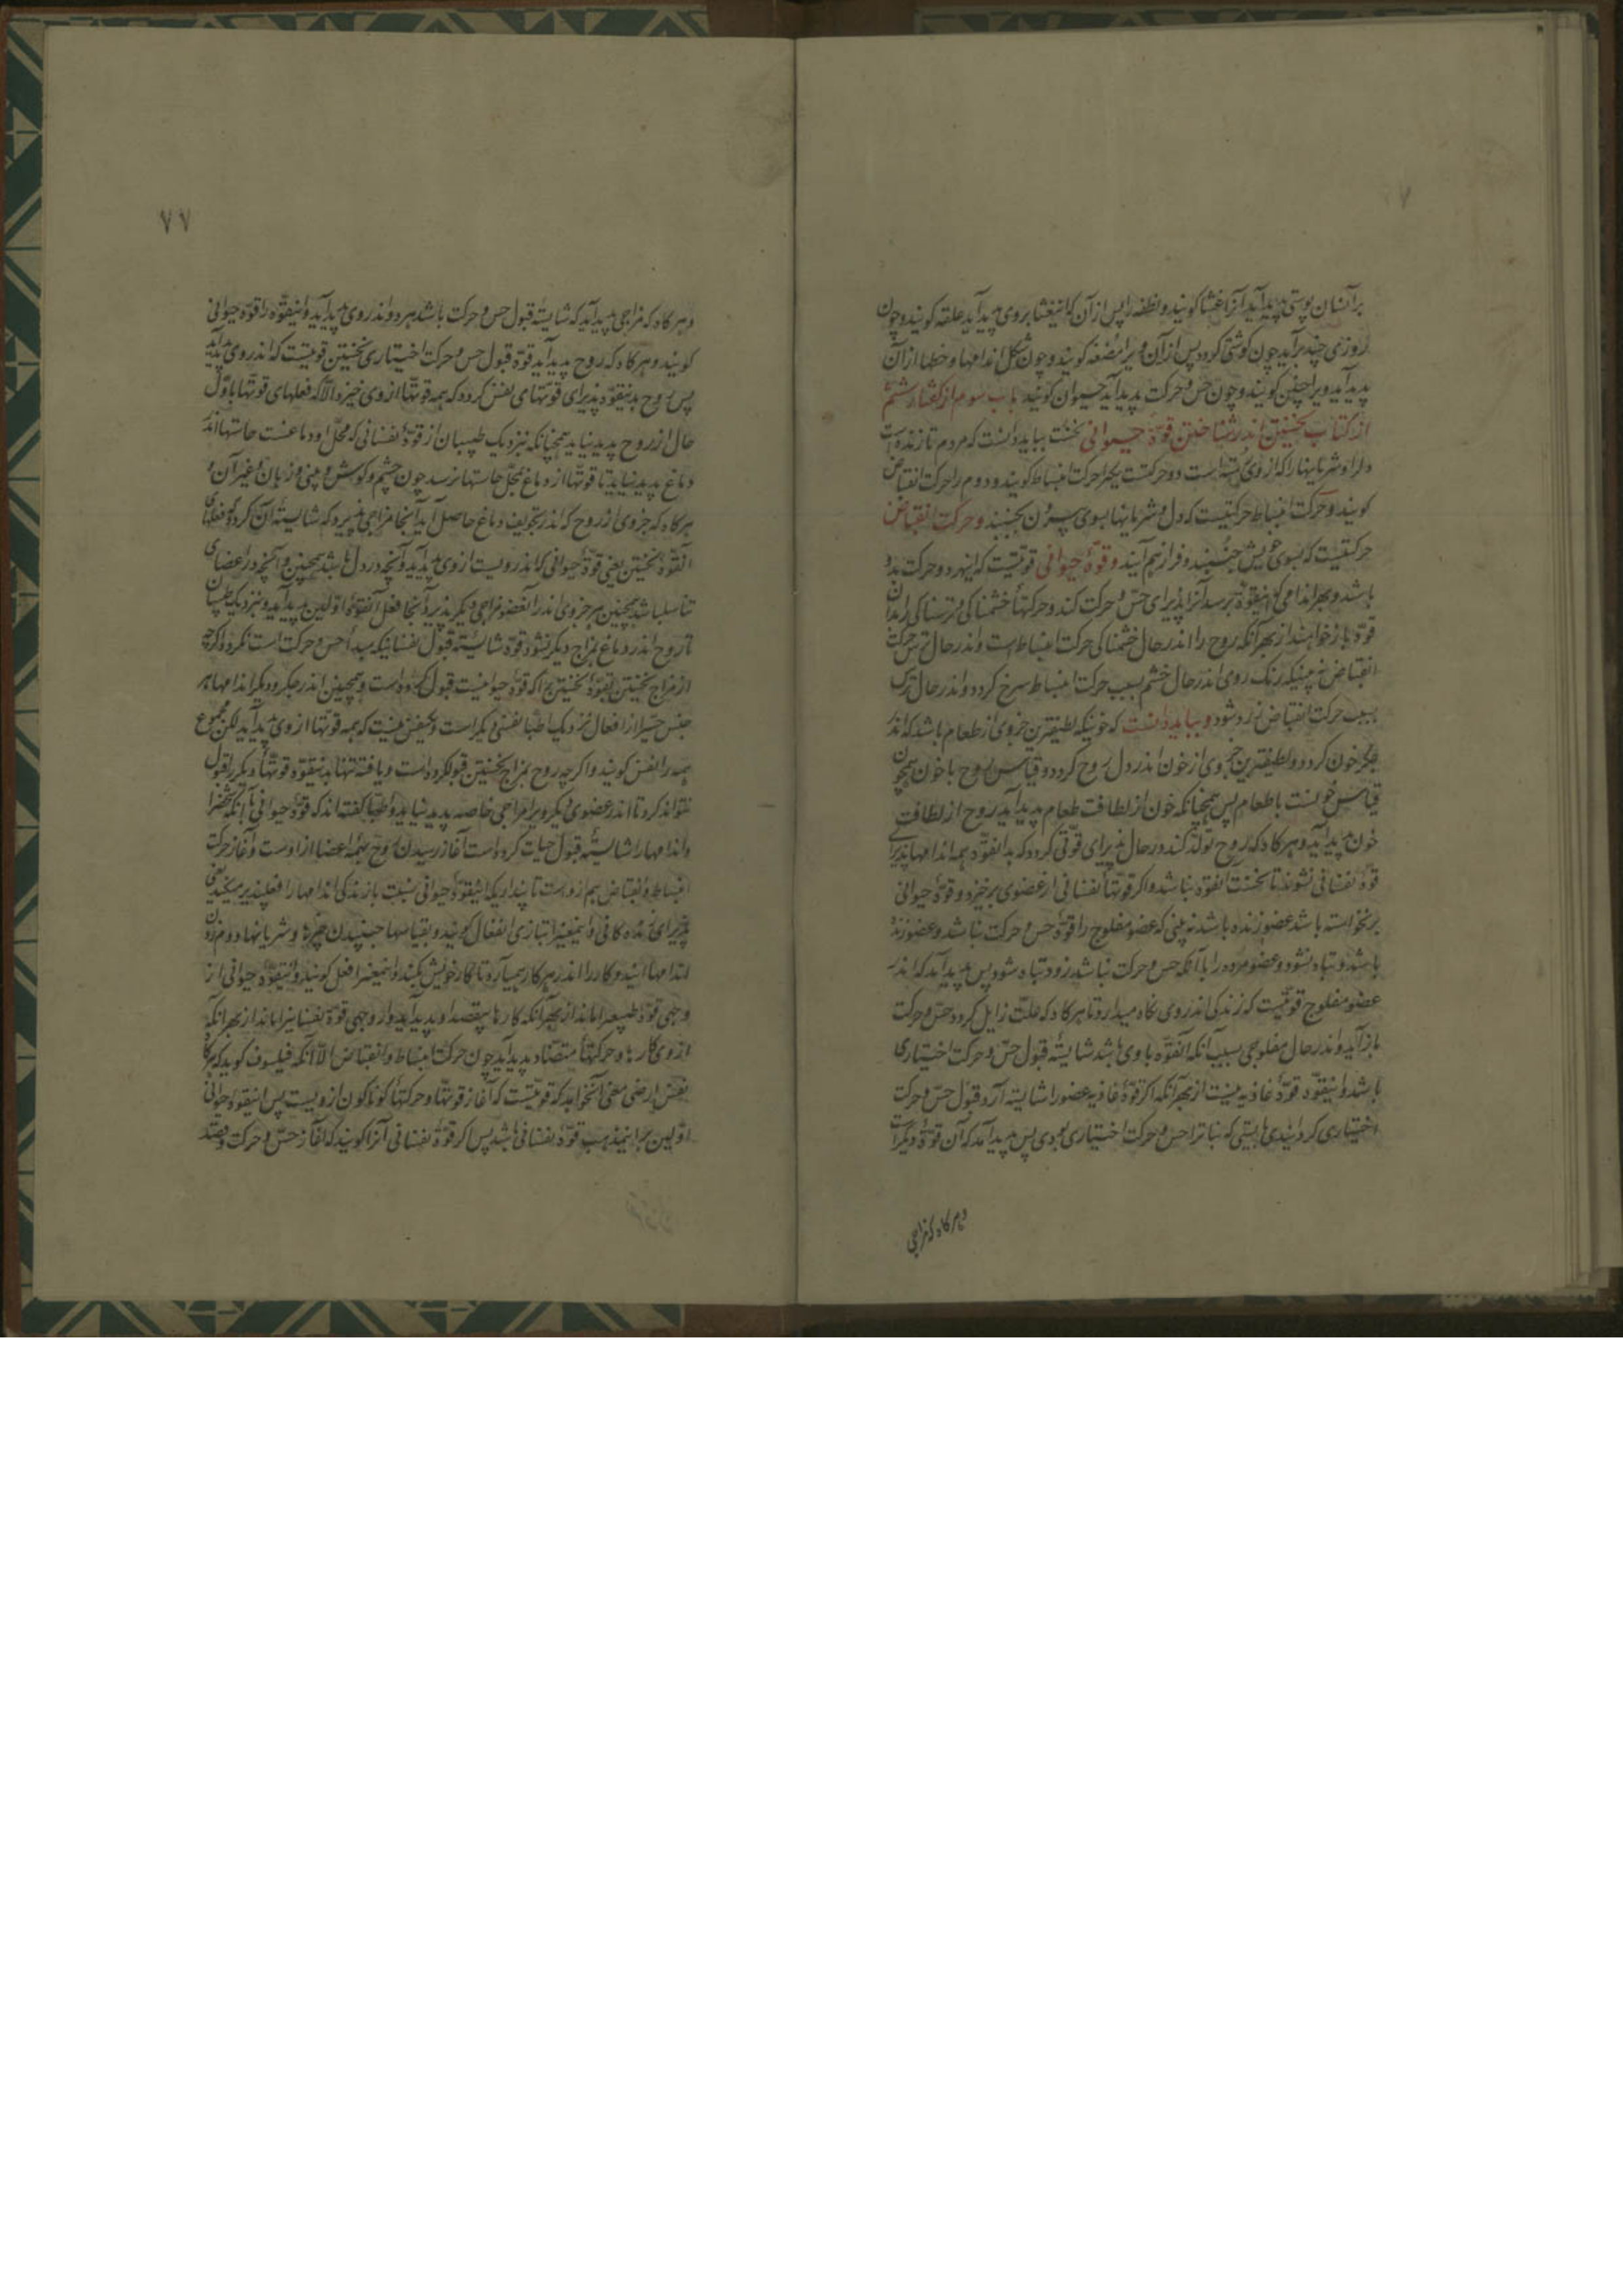 برآنسان پوستی پدید آید آنرا غشا گویند و نطفه را پس از آن کاینغشا بر وی پدید آید علقه گویند و چون
روزی چند برآید چون گوشتی گردد پس از آن ویرا مضغه گویند و چون شکل اندامها و خطها از آن
پدید آید ویرا جنین گویند و چون حس و حرکت پدید آید حیوان گویند باب سوم از گفتار ششم
از کتاب نخستین اندر شناختن قوّة حیوانی نخست بباید دانست که مردم تا زنده است
دل او و شریانها را که از وی رسته است دو حرکتست یکیرا حرکت انبساط گویند و دوم را حرکت انقباض
گویند و حرکت انبساط حرکتیست که دل و شریانها بسوی بیرون بجنبند و حرکت انقباض
حرکتیست که بسوی خویش جنبند و فراز هم آیند و قوّة حیوانی قوتیست که اینهر دو حرکت بدو
باشد و بهر اندامی که اینقوّة برسد آنرا پذیرای حس و حرکت کند و حرکتها خشمناکی و ترسناکی را بدان
قوّة باز خوانند از بهر آنکه روح را اندر حال خشمناکی حرکت انبساط است و اندر حال ترس حرکت
انقباض نه بینی که رنگ روی اندر حال خشم بسبب حرکت انبساط سرخ گردد و اندر حال ترس
بسبب حرکت انقباض زرد شود و بباید دانست که خونیکه لطیفترین جزوی از طعام باشد که اندر
جگر خون گردد و لطیفترین جزوی از خون اندر دل روح گردد و قیاس روح با خون همچون
قیاس خونست با طعام پس همچنانکه خون از لطافت طعام پدید آید روح از لطافت
خون پدید آید و هرگاه که روح تولّد کند در حال پذیرای قوّتی گردد که بدانقوّة همه اندامها پذیرای
قوّة نفسانی نشوند تا نخست انقوّة نباشد و اگر قوّتها نفسانی از عضوی برخیزد و قوّة حیوانی
برنخواسته باشد عضو زنده باشد نه بینی که عضو مفلوج را قوّة حس و حرکت نباشد و عضو زنده
باشد و تباه نشود و عضو مرده را با آنکه حس و حرکت نباشد زود تباه شود پس پدید آید که اندر
عضو مفلوج قوتیست که زندگی اندر وی نگاه میدارد تا هرگاه که علت زایل گردد حس و حرکت
باز آید و اندر حال مفلوجی بسبب آنکه آنقوّة با وی باشد شایستهٔ قبول حسّ و حرکت اختیاری
باشد و اینقوّة قوّة غاذیه نیست از بهر آنکه اگر قوّة غاذیه عضو را شایسته آرد قبول حسّ و حرکت
اختیاری کردانیدی بایستی که نباترا حس و حرکت اختیاری بودی پس پدید آمد که آن قوّة دیگر است
و هرگاه که مزاجی
۷۷
و هرگاه که مزاجی پدید آید که شایستهٔ قبول حس و حرکت باشد هر دو اندر وی پدید آید و اینقوّه را قوّة حیوانی
گویند و هرگاه که روح پدید آید قوّة قبول حس و حرکت اختیاری نخستین قوتیست که اندر وی پدید آید
پس روح بدینقوّة پذیرای قوّتهای نفس گردد که همه قوتها از وی خیزد الّا که فعلهای قوتها باوّل
حال از روح پدید نیاید همچنانکه نزدیک طبیبان از قوّة نفسانی که محلّ او دماغست حاستها اندر
دماغ پدید نیاید تا قوتها از دماغ بمحلّ حاستها نرسد چون چشم و گوش و بینی و زبان و غیر آن و
هرگاه که جزوی از روح که اندر تجویف دماغ حاصل آید آنجا مزاجی پذیرد که شایستهٔ آن گردد که فعلهای
انقوّة نخستین یعنی قوّة حیوانی که اندر ویست از وی پدید آید و آنچه در دل باشد همچنین و آنچه در اعضای
تناسل باشد همچنین هر جزوی اندر آنعضو مزاجی دیگر پذیرد آنجا فعل آنقوّة اوّلین پدید آید و نزدیک طبیبان
تا روح اندر دماغ بمزاج دیگر نشود قوّة شایستهٔ قبول نفسانی که مبدأ حس و حرکت است نگردد اگرچه
از مزاج نخستین بقوّة نخستین که قوّة حیوانیست قبول کرده است و همچنین اندر جگر و دیگر اندامها هر
جنس را از افعال نزدیک اطبّا نفسی دیگر است و یکنفس نیست که همه قوتها از وی پدید آید لکن مجموع
همه را نفس گویند و اگرچه روح بمزاج نخستین قبول کرده است و یافته تنها بدینقوّة قوتها دیگر را قبول
نتواند کرد تا اندر عضوی دیگر ویرا مزاجی خاصه پدید نیاید و اطبّا گفته اند که قوّة حیوانی با آنکه
و اندامها را شایستهٔ قبول حیات کرده است آغاز رسیدن روح بهمه اعضا از اوست و آغاز حرکت
انبساط و انقباض هم ازوست تا پنداری که اینقوّة حیوانی نسبت با زندگی اندامها را فعلپذیر میکند یعنی
پذیرای زنده کافی و اینمعنیرا بتازی انفعال گویند و بقیاس با جنبیدن و شریانها و دم زدن
اندامها آیند و کار را اندر هر کار می‌آرد تا کار خویش بکنند و اینمعنیرا فعل گویند و اینقوّة حیوانی از
وجهی قوّة طبیعیرا ماند از بهر آنکه کارها بیقصد او پدید آید و از وجهی قوّة نفسانیرا ماند از بهر آنکه
از وی کارها و حرکتها متضّاد پدید آید چون حرکت انبساط و انقباض الّا آنکه فیلسوف گوید که هرگاه
نفس ارضی معنی آنخواهد که قوّتیست که آغاز قوتها و حرکتها گوناگون از ویست پس اینقوّة حیوانی
اوّلین بر اینمذهب قوّة نفسانی باشد پس اگر قوّة نفسانی آنرا گویند که آغاز حسّ و حرکت و بقصد